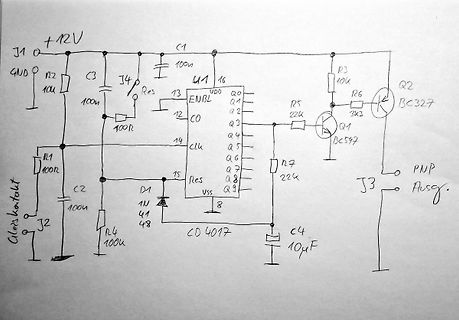 J1
+12V
GND
R2
10k
C3
100n
J4
Res
100R
C1
100n
U1
16
VDD
13
ENBL
12
CO
14
Clk
15
Res
Vss
8
Q0
Q1
Q2
Q3
Q4
Q5
Q6
Q7
Q8
Q9
CD4017
R5
22k
R3
10k
Q1
BC547
R6
3k3
Q2
BC327
R1
100R
Gleiskontakt
J2
C2
100n
R4
100k
D1
1N
41
48
R7
22k
C4
10µF
J3
PNP
Ausg.